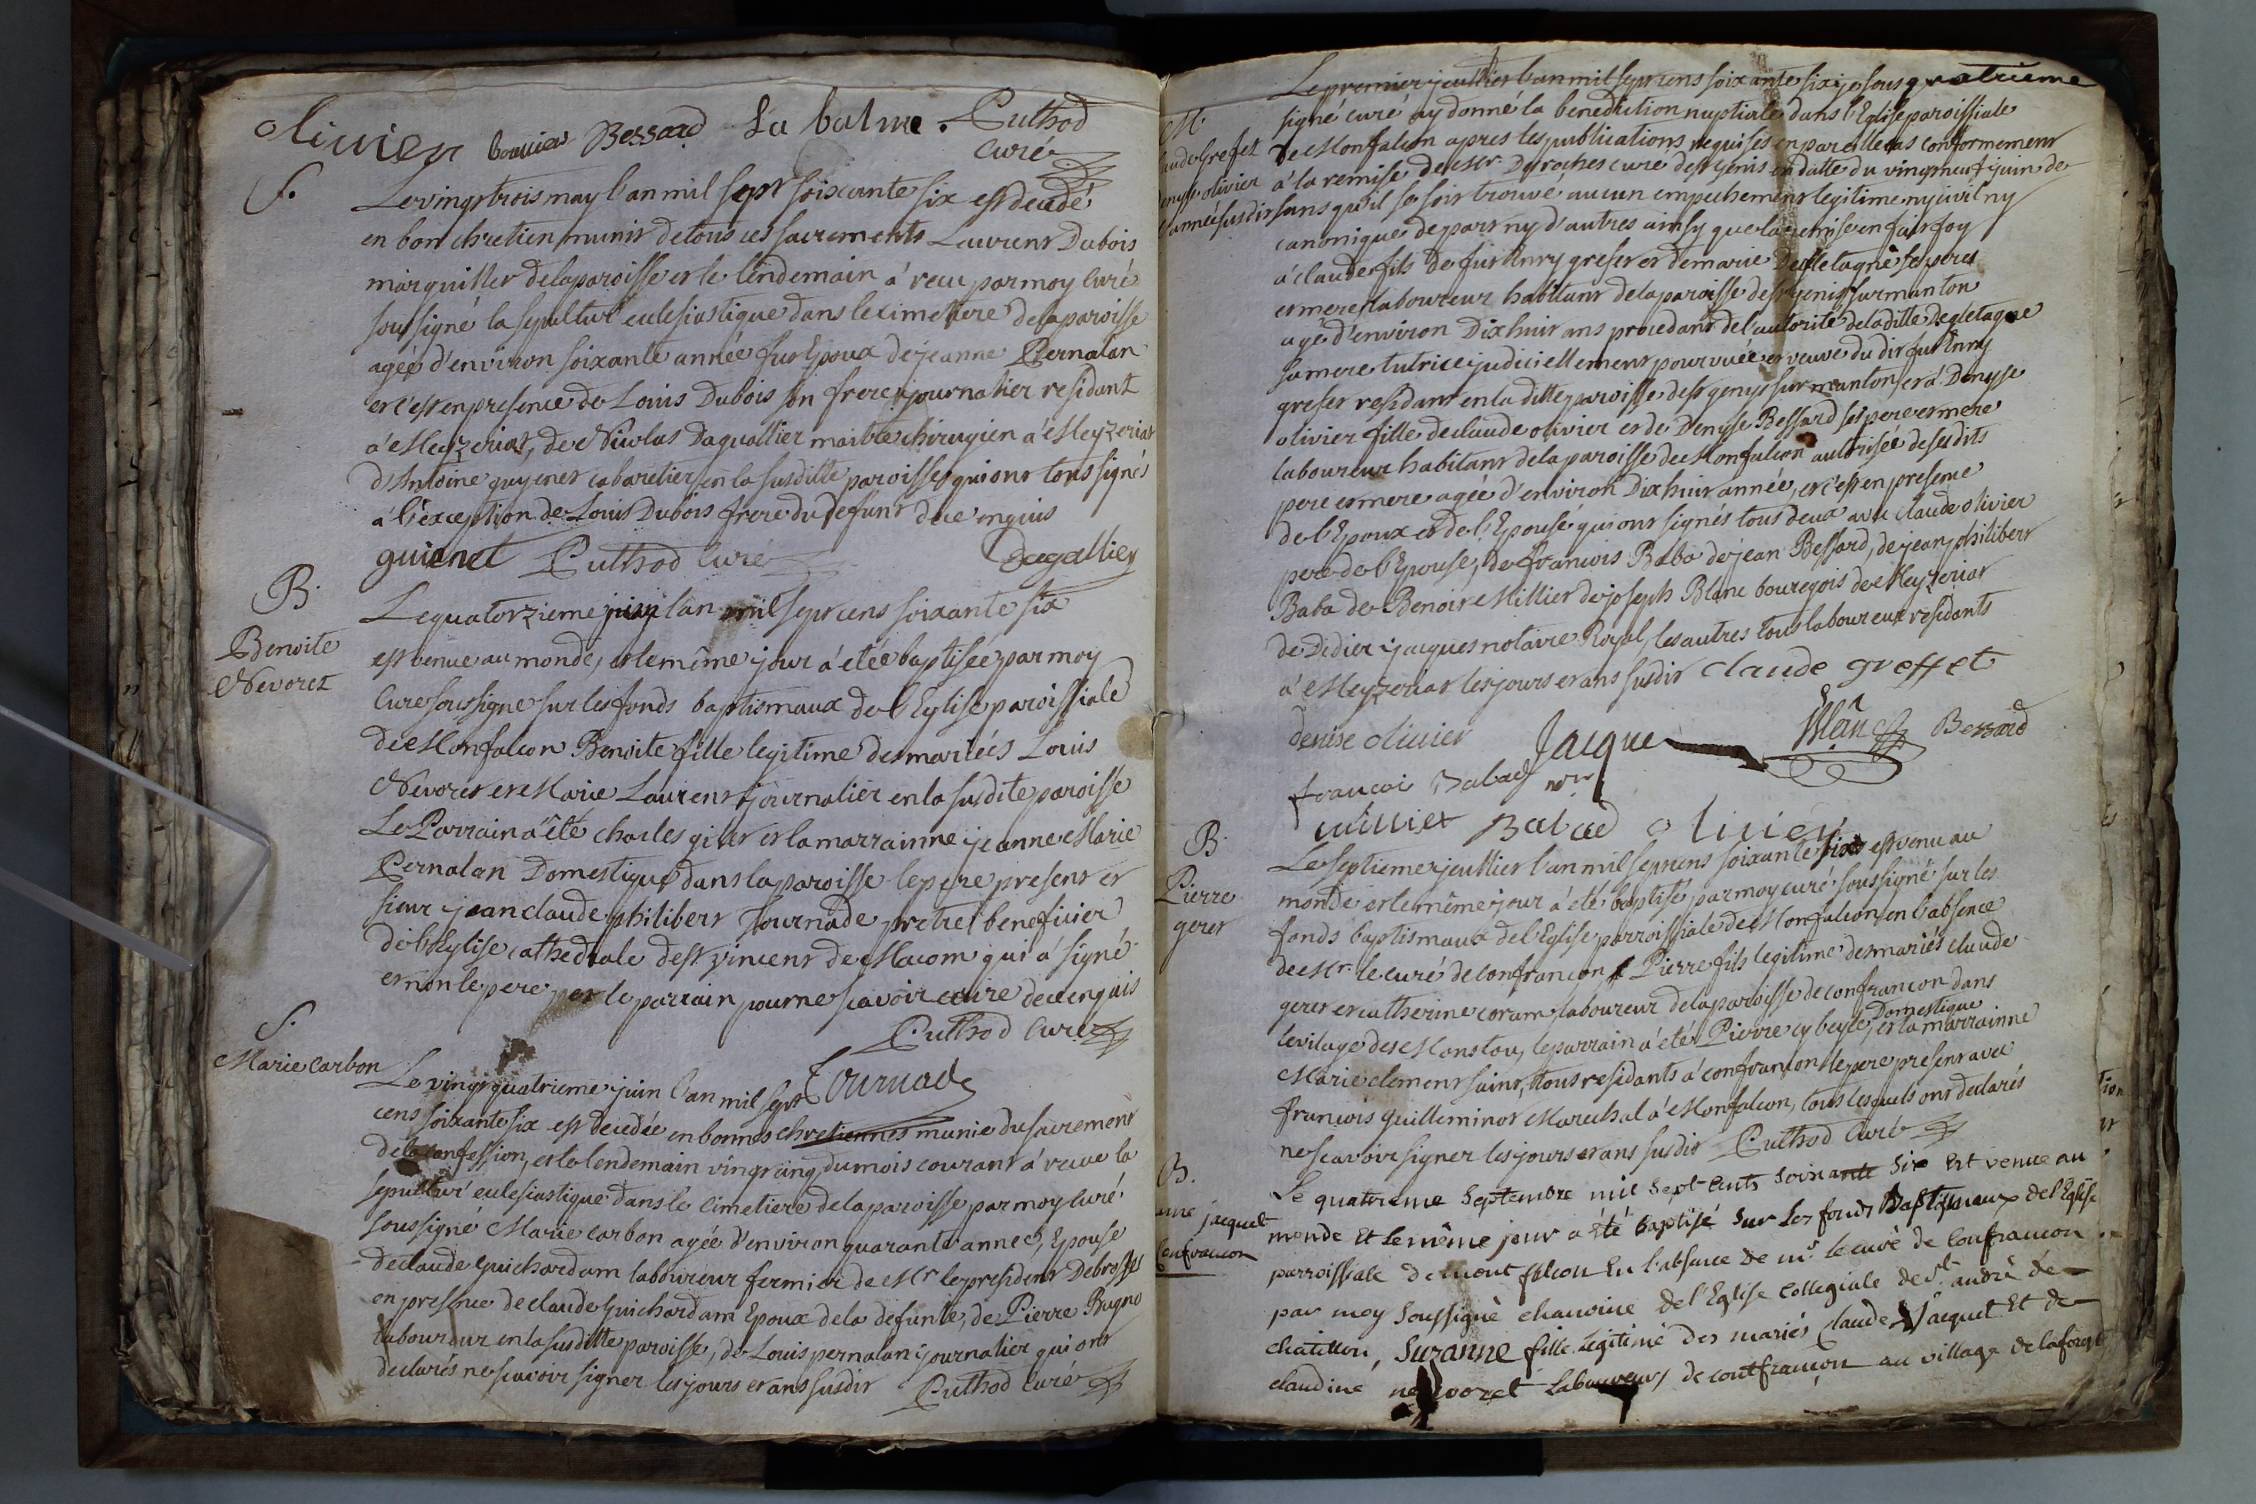 olivier bouvier Bessard La balme. Puthod
curé
S.
Le vingt trois may l'an mil sept soixante six est decedé
en bon chretien munit de tous ces sacrements Laurent Dubois
marguiller de la paroisse et le lendemain à receu par moy Curé
soussigné la sepultur eclesiastique dans le cimetiere de la paroisse
agée d'environ soixante année fut Epoux de jeanne Pernalan
et c'est en presence de Louis Dubois son frere journalier residant
a Meyzeriat, de Nicolas Daguallier maitre chirugien a Meyzeriat
d'Antoine guyenet cabaretier en la susditte paroisse qui ont tous signés
a l'exception de Louis Dubois frere du defunt de ce enquis
guienet Puthod Curé Dagallier
B.
Benoite
Nevoret
Le quatorzieme juin l'an mil sept cens soixante six
est venue au monde, et le même jour a étée baptisée par moy
Curé soussigne sur les fonds baptismaux de l'Eglise paroissiale
de Monfalcon Benoite fille legitime des mariées Louis
Nevoret et Marie Laurent journalier en la susdite paroisse
Le Parrain a été charles giler et la marrainne jeanne Marie
Pernalan Domestique dans la paroisse le pere present et
sieur jean claude philibert Tournade pretre beneficier
de l'Eglise cathedrale de st vincent de Macom qui a signé
et non le pere, et le parrain pour ne scavoir ecrire de ce enquis
Puthod Curé
Tournade
S.
Marie Carbon
Le vingt quatrieme juin l'an mil sept
cens soixante six est decedée en bonnes chretiennes munie du sacrement
de la confession, et le lendemain vingt cinq du mois courant a receue la
sepultur eclesiastique dans le Cimetiere de la paroisse par moy curé
soussigné Marie Carbon agée d'environ quarante année, Epouse
de claude Guichardam laboureur fermier de Mr le president Debrosses
en presence de claude Guichardam Epoux de la defunte, de Pierre Bugno
laboureur en la susditte paroisse, de Louis pernalan journalier qui ont
declarés ne scavoir signer les jours et ans susdit Puthod Curé
M.
Le premier jeullier l'an mil sept cens soixante six je sous quatrieme
signé curé ay donné la benediction nuptiale dans l'Eglise paroissiale
de Monfalcon apres les publications requises en pareille cas conformement
à la remise de Mr. Deroches curé de st genis en datte du vingt neuf juin de
l'année susdit sans qu'il se soit trouvé aucun empechement legitime ny civil ny
canonique de part ny d'autres ainsy que la remise en fait foy
à claude fils de fut Enry grefet et de marie Degletagne ses pere
et mere laboureur habitant de la paroisse de st genis sur manton
age d'environ Dix huit ans procedant de l'autorité de la ditte Degletagne
sa mere tutrice judiciellement pourvuée et veuve du dit fut Enry
grefet residant en la ditte paroisse de st genys sur menton et a Denyse
olivier fille de claude olivier et de Denyse Bessard ses pere et mere
laboureur habitant de la paroisse de Monfalcon autorisée de sesdits
pere et mere agée d'environ Dix huit année, et c'est en presence
de l'Epoux et de l'Epouse qui ont signés tous deux avec claude olivier
pere de l'Epouse, de francois Baba de jean Bessard, de jean philibert
Baba de Benoit Millier de joseph Blanc bouregois de Meyzeriat
de Didier jacques notaire Royal, les autres tous laboureur residants
à Meyzeriat les jours et ans susdit claude greffet
denise olivier Jacque Blanc Bessard
francoi Babad nre
millier Babad olivier
B.
Pierre
gerer
Le septieme jeullier l'an mil sept cens soixante six est venu au
monde et le même jour a été baptisés par moy curé soussigné sur les
fonds baptismaux de l'Eglise parroissiale de Monfalcon en l'absence
de Mr. le curé de confrancon Pierre fils legitime des mariés claude
gerer et catherine coram laboureur de la paroisse de confrancon dans
le vilage des Monstou, le parrain a été Pierre cybeyle, Domestique et la marrainne
Marie clement saint, tous residants a confrancon le pere present avec
francois Guilleminot Marechal a Monfalcon, tous lesquels ont declarés
ne scavoir signer les jours et ans susdit Puthod Curé
B.
jacquet
Confrancon
Le quatrieme Septembre mil Sept cents Soixante Six Est venue au
monde Et le même jour a été Baptisé sur Les fonds Baptismaux de l'Eglise
parroissiale de mont falcon En l'absence de mr le curé de Confrancon
par moy Soussigné chanoine de l'Eglise Collegiale de st. andré de
chatillon, Suzanne fille Légitime des mariés Claude Jacquet Et de
claudine nevoret Laboureurs de confrancon au village de laforest